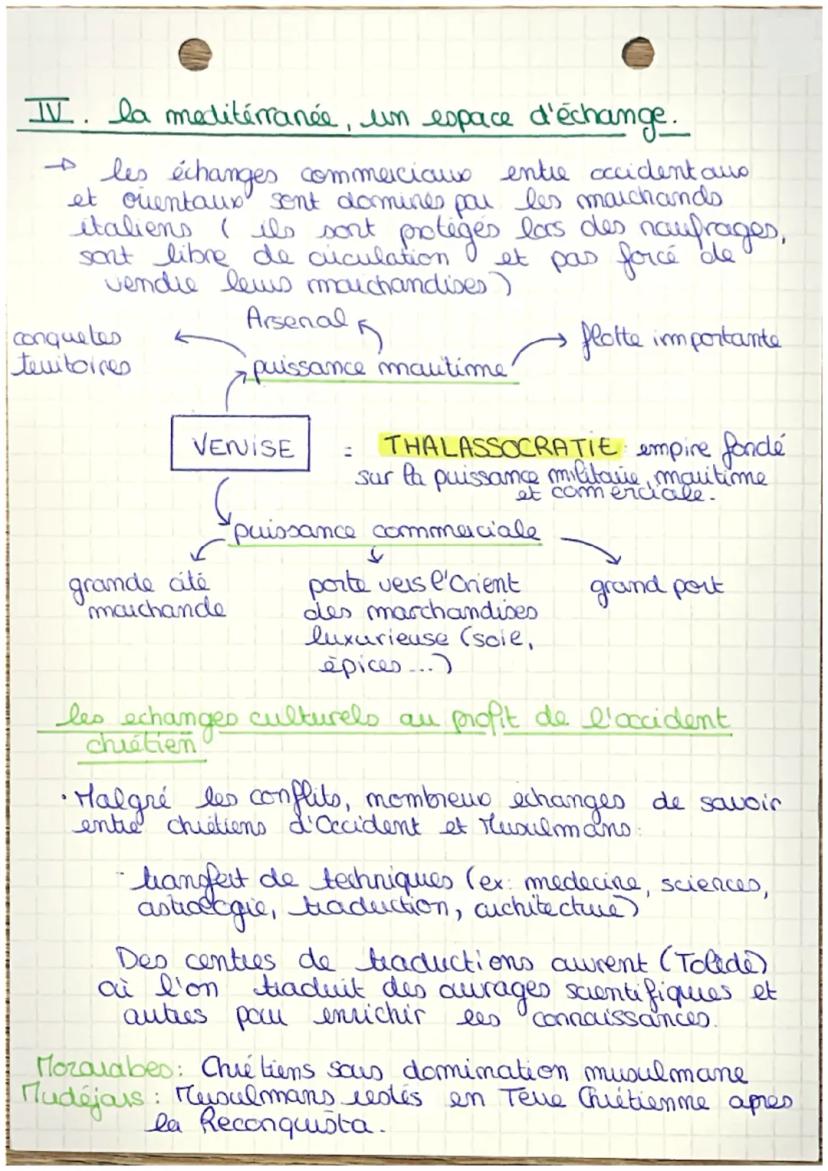 IV. la meditérranée, un espace d'échange.
→ les échanges commerciaux entre occidentaux
et orientaux sont dominés par les marchands
italiens ( ils sont protégés lors des naufrages,
sont libre de circulation et pas forcé de
vendre leurs marchandises )
Arsenal
conquetes
territoires
flotte importante
puissance maritime
VENISE
= THALASSOCRATIE : empire fondé
sur la puissance militaire, maritime
et comerciale.
puissance commerciale
grande cité
marchande
porte vers l'Orient
des marchandises
luxurieuse (soie,
épices ...)
grand port
les echanges culturels au profit de l'occident
chrétien
· Malgré les conflits, nombreux echanges de savoir
entre chrétiens d'Occident et Musulmans :
- transfert de techniques (ex: medecine, sciences,
astrologie, traduction, architecture)
Des centres de traductions ouvrent (Tolède)
où l'on traduit des ouvrages scientifiques et
autres pour enrichir les connaissances.
Mozarabes : Chrétiens sous domination musulmane
Mudéjars : Musulmans restés en Terre Chrétienne apres
la Reconquista.